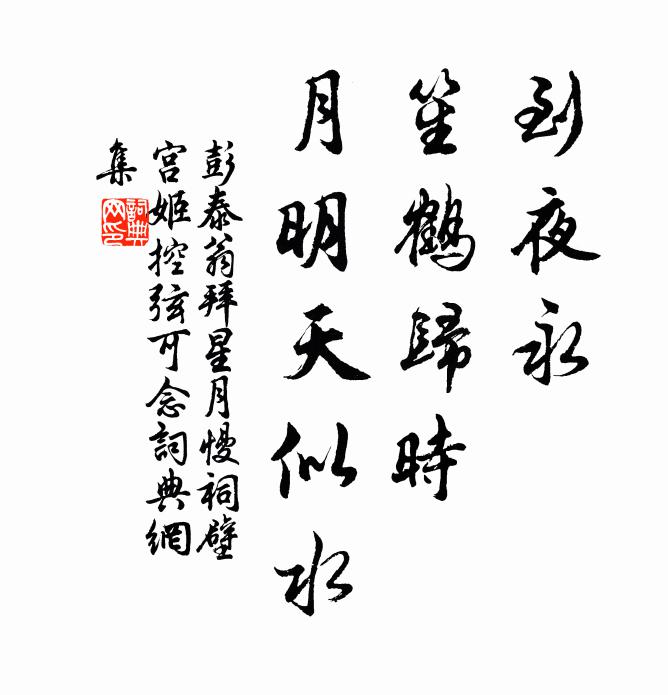 到夜永
笙鶴歸時
月明天似水
彭泰翁拜星月慢祠壁
宮姬控弦可念詞典網
集
詞典
网印